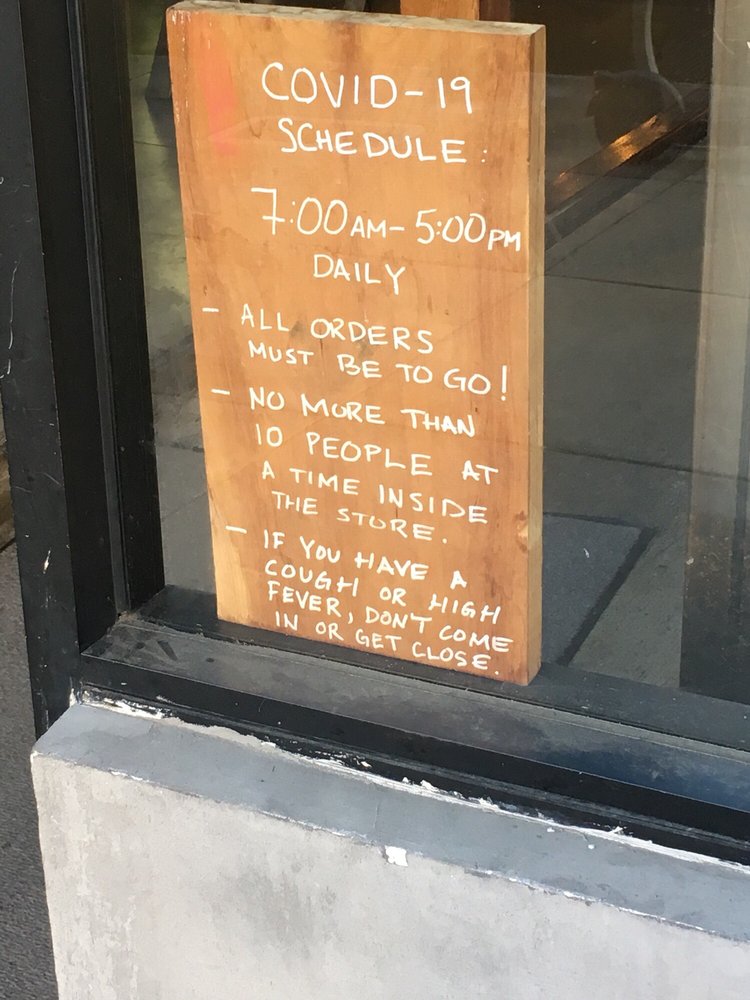 COVID-19
SCHEDULE:
7:00AM-5:00PM
DAILY
- ALL ORDERS
MUST BE TO GO!
- NO MORE THAN
10 PEOPLE AT
A TIME INSIDE
THE STORE.
- IF YOU HAVE A
COUGH OR HIGH
FEVER, DON'T COME
IN OR GET CLOSE.